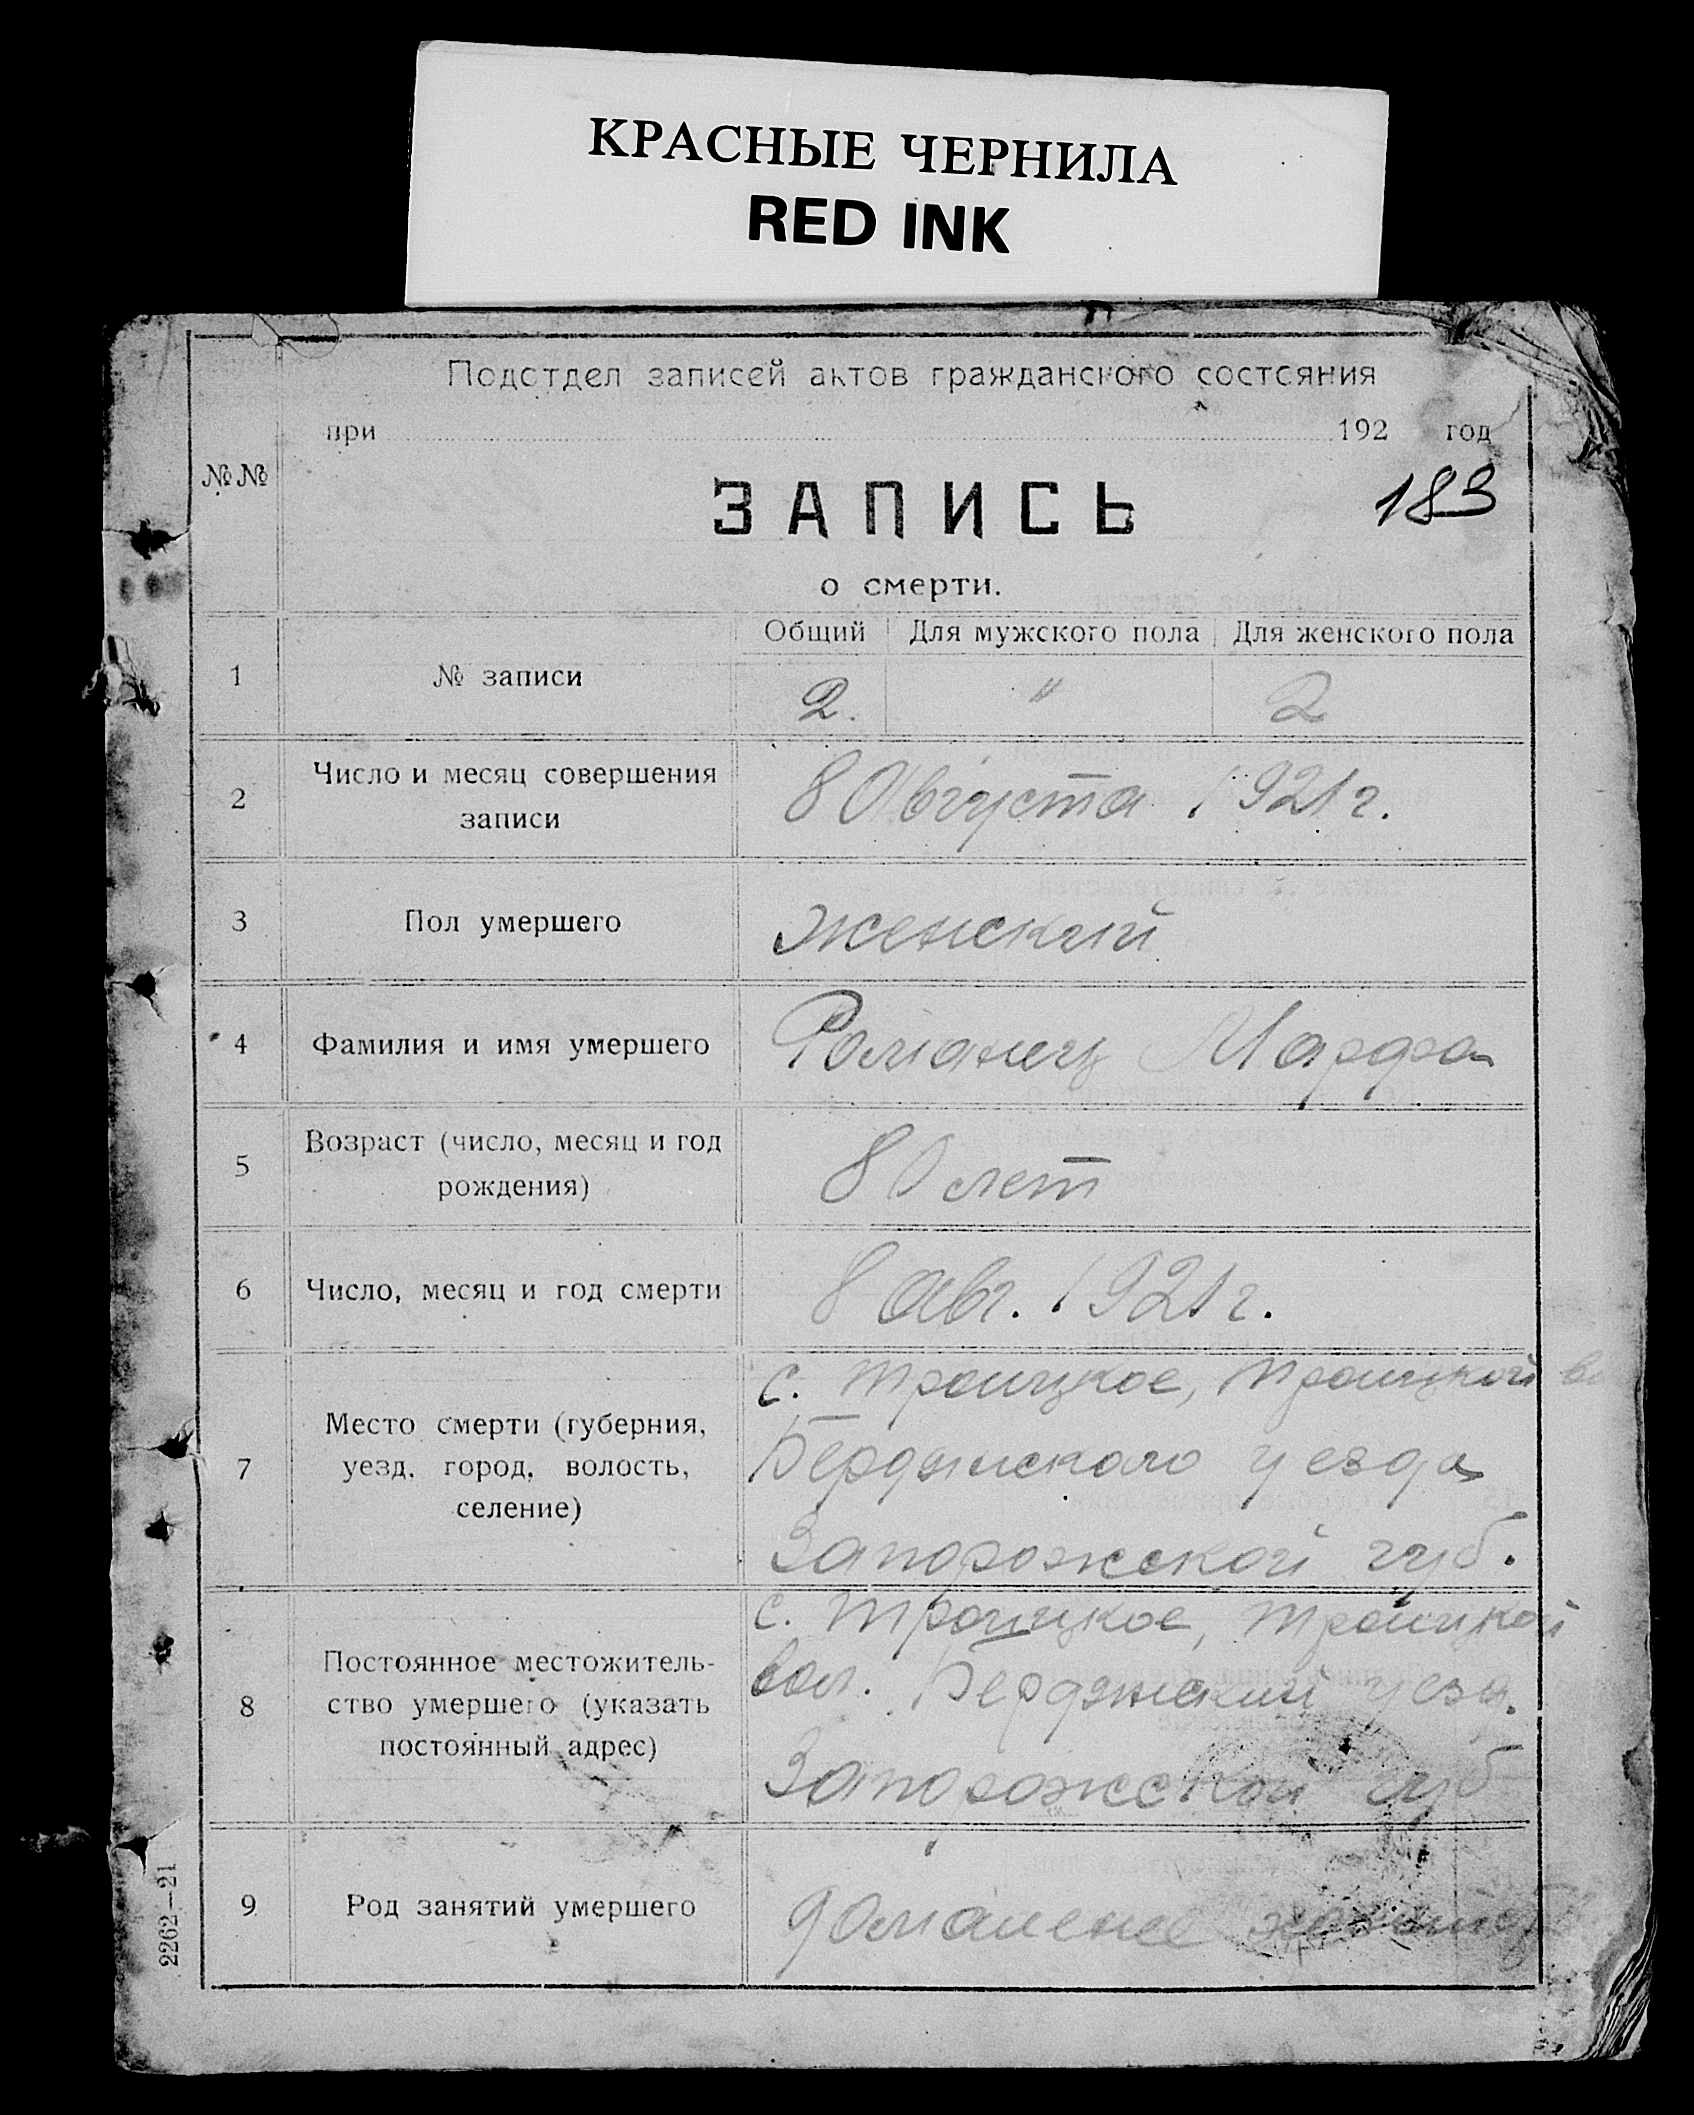 КРАСНЫЕ ЧЕРНИЛА
RED INK
Подотдел записей актов гражданского состояния
при 192 год
№№
ЗАПИСЬ 183
о смерти.
Общий Для мужского пола Для женского пола
1 № записи
2. " 2
2 Число и месяц совершения записи
8 Августа 1921 г.
3 Пол умершего
женский
4 Фамилия и имя умершего
Романец Марфа
5 Возраст (число, месяц и год рождения)
80 лет
6 Число, месяц и год смерти
8 Авг. 1921 г.
7 Место смерти (губерния, уезд, город, волость, селение)
с. Троицкое, Троицкой
Бердянского уезда
Запорожской губ.
8 Постоянное местожительство умершего (указать постоянный адрес)
с. Троицкое, Троицкой
вол. Бердянский уезд.
Запорожской губ
9 Род занятий умершего
домашнее
2262—21